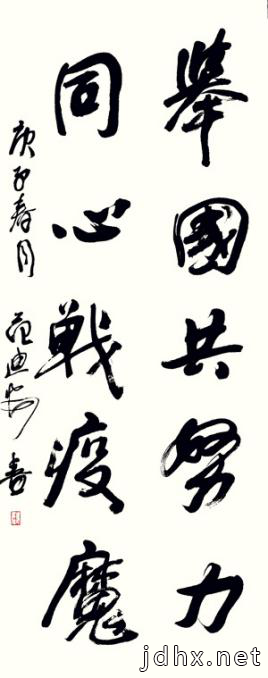 舉國共努力
同心戰疫魔
庚子春月 范迪安書
jdhx.net